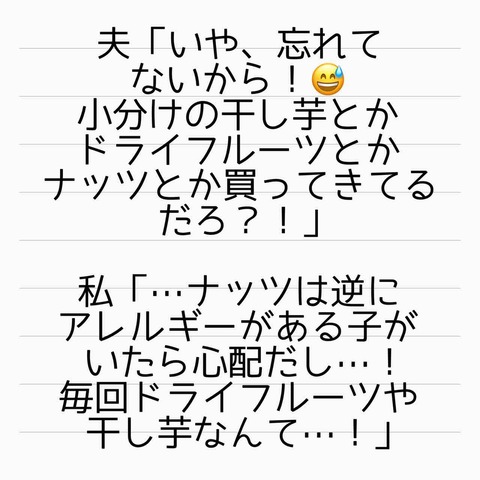 夫「いや、忘れて
ないから！😅
小分けの干し芋とか
ドライフルーツとか
ナッツとか買ってきてる
だろ？！」
私「…ナッツは逆に
アレルギーがある子が
いたら心配だし…！
毎回ドライフルーツや
干し芋なんて…！」